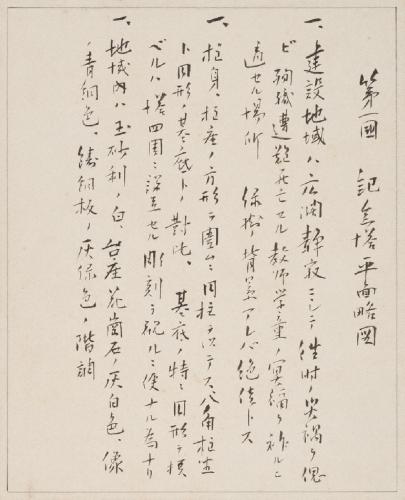 第一図　記念塔平面略図
一、建設地域ハ広濶静寂ニシテ往時ノ災禍ヲ偲
ビ殉職遭難死亡セル教師学童ノ冥福ヲ祈ルニ
適セル場所　緑樹ノ背景アレバ絶佳トス
一、柱身、柱座ノ方形ヲ囲ムニ円柱ヲ以テス八角柱座
ト円形ノ基底トノ対比、基底ノ特ニ円形ヲ撰
ベルハ塔四囲ニ深立セル彫刻ヲ観ルニ便ナル為ナリ
一、地域内ハ玉砂利ノ白、台座花崗石ノ灰白色、像
ノ青銅色、鋳銅板ノ灰緑色ノ階調